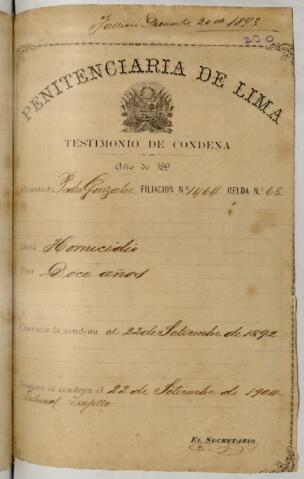 Falleció Diciembre 20 de 1893
230
PENITENCIARIA DE LIMA
TESTIMONIO DE CONDENA
Año de 189
Pedro Gonzales FILIACION N.º 1464 CELDA N.º 68.
Delito Homicidio
Pena Doce años
Comienza la condena el 22 de Setiembre de 1892
la condena el 22 de Setiembre de 1904
Tribunal Trujillo
EL SECRETARIO